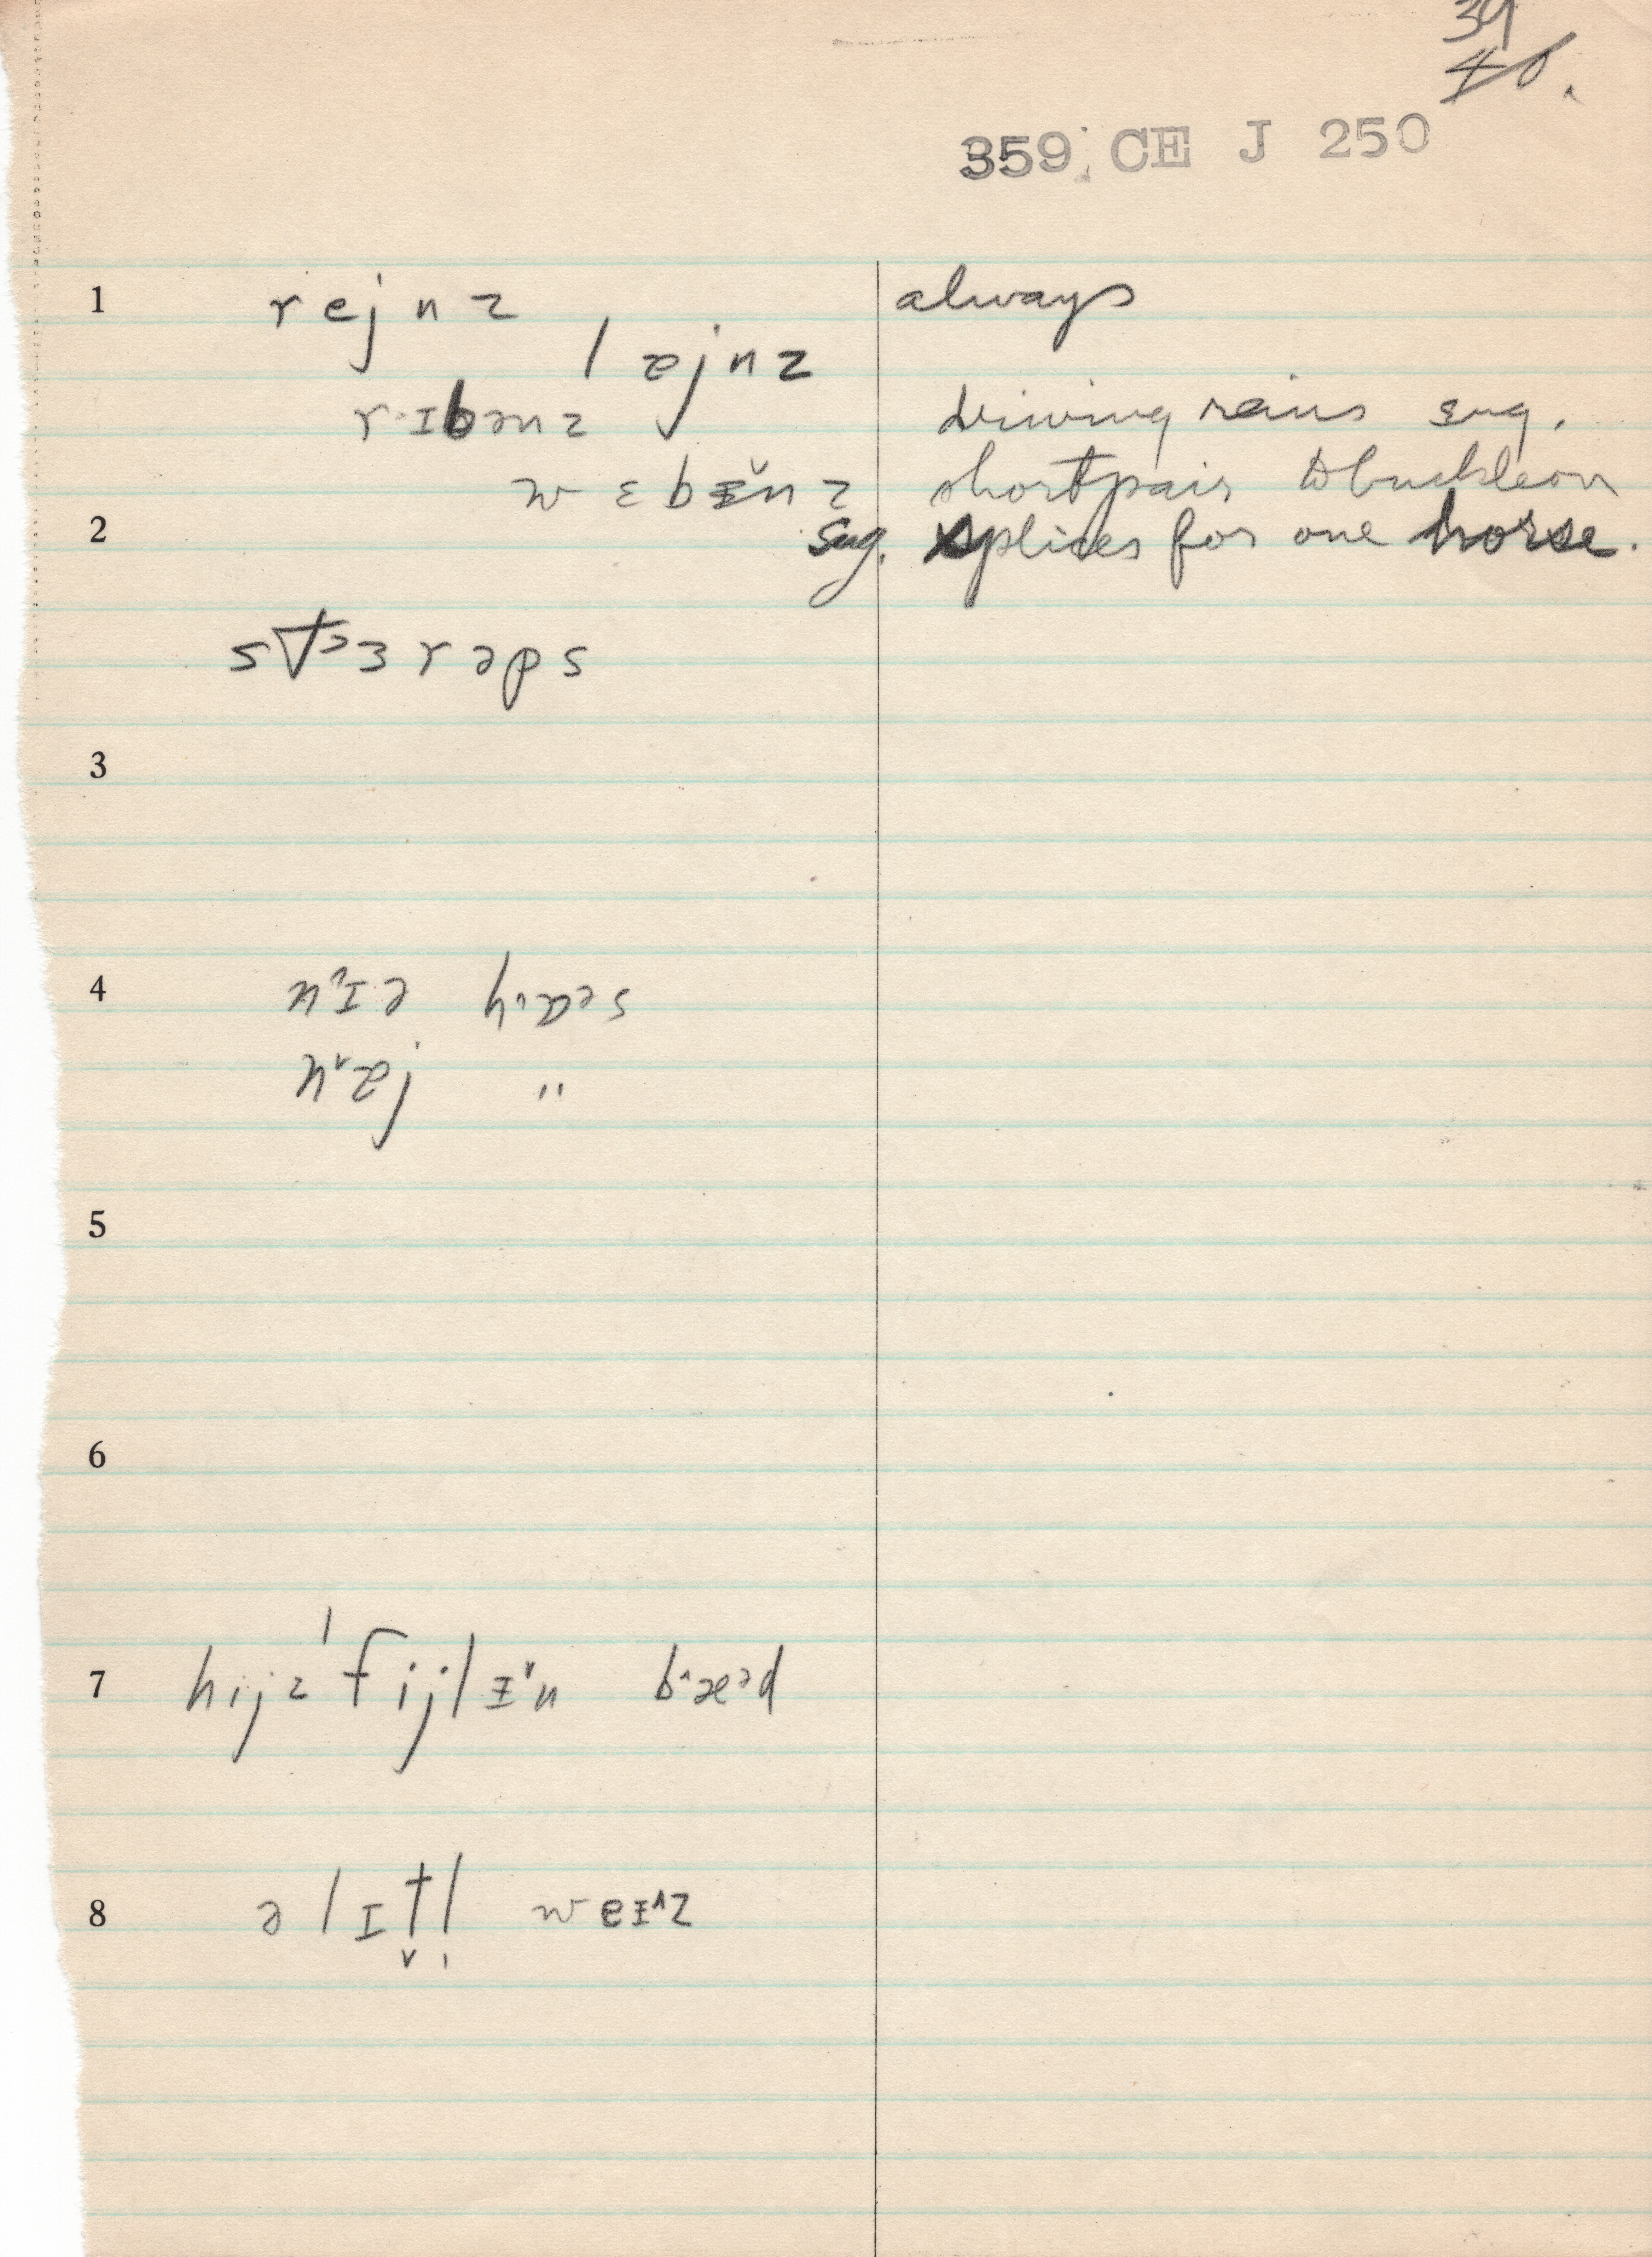 39
359 CE J 250
1 rejnz always
lejnz
rɪbənz driving reins sug.
wɛbɪ̆nz short pair to buckle on
2 Sug. splices for one horse.
stɜrəps
3
4
"
5
6
7 hijz fijlɪ˅n bˆæᵊd
8 ə lɪt̬l̩ weɪ˄z